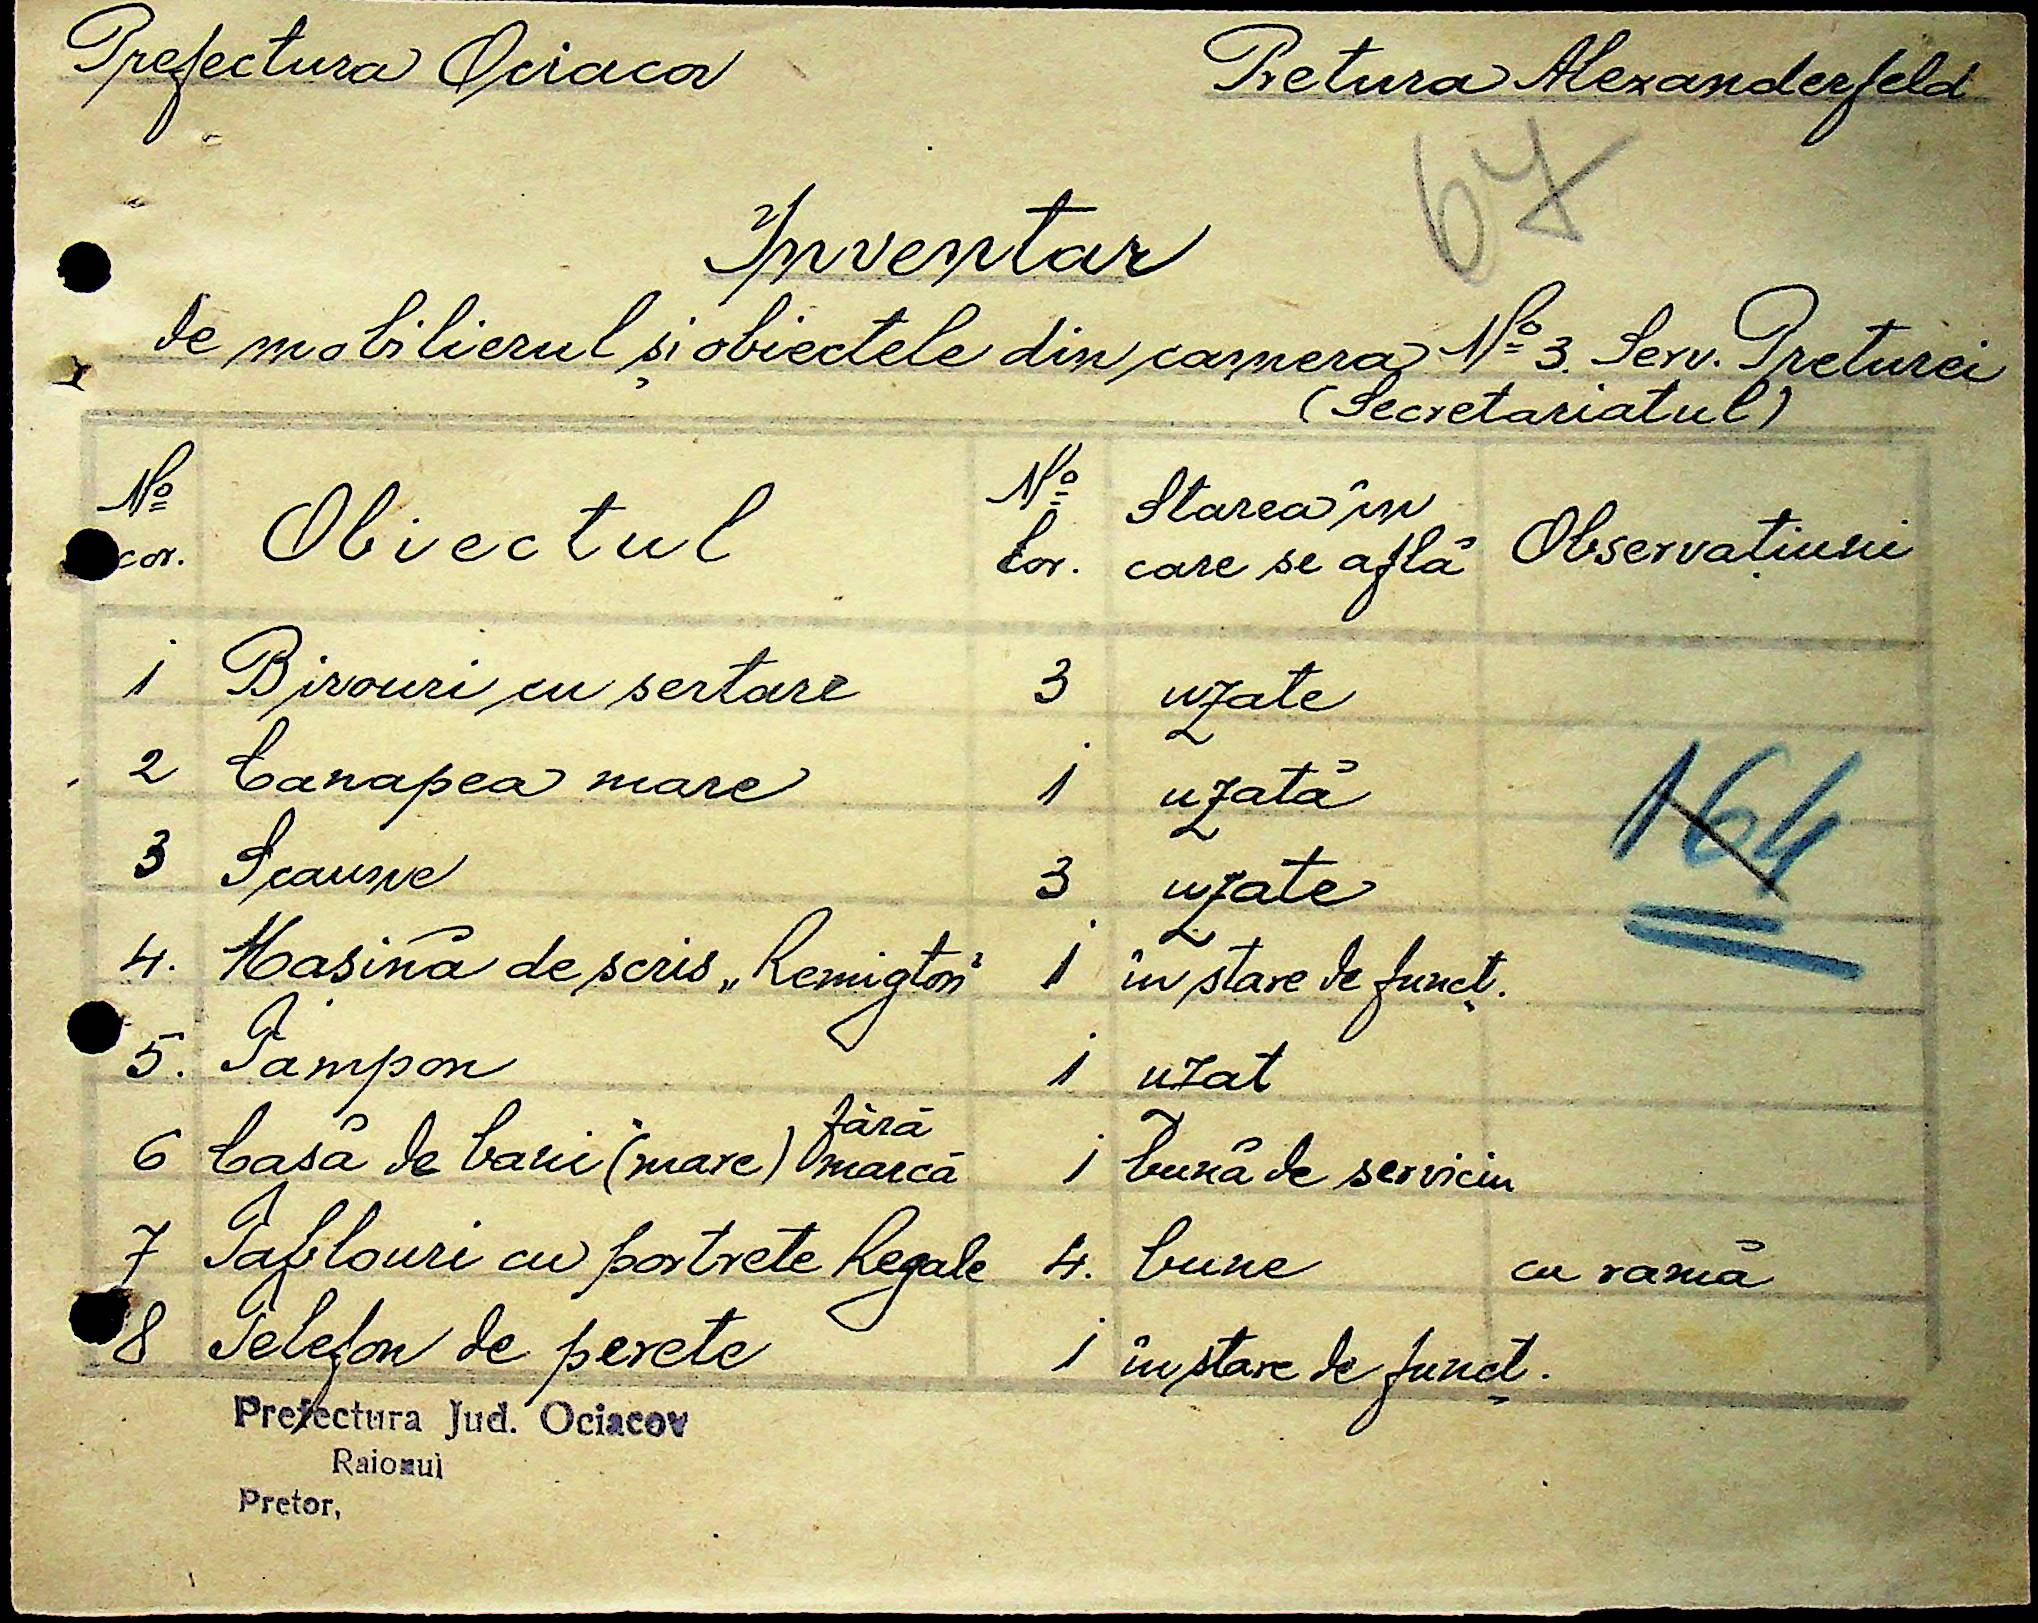 Prefectura Ociacov Pretura Alexanderfeld
67
Inventar
de mobilierul și obiectele din camera Nº 3. Serv. Preturei
(Secretariatul)
Nº cor. Obiectul Nº cor. Starea în care se află Observațiuni
1 Birouri cu sertare 3 uzate
2 Canapea mare 1 uzată
3 Scaune 3 uzate
164
4. Masină de scris „Remigton" 1 în stare de funcț.
5. Tampon 1 uzat
6 Casă de bani (mare) fără marcă 1 bună de serviciu
7 Tablouri cu portrete Regale 4. bune cu ramă
8 Telefon de perete 1 în stare de funcț.
Prefectura Jud. Ociacov
Raionul
Pretor,